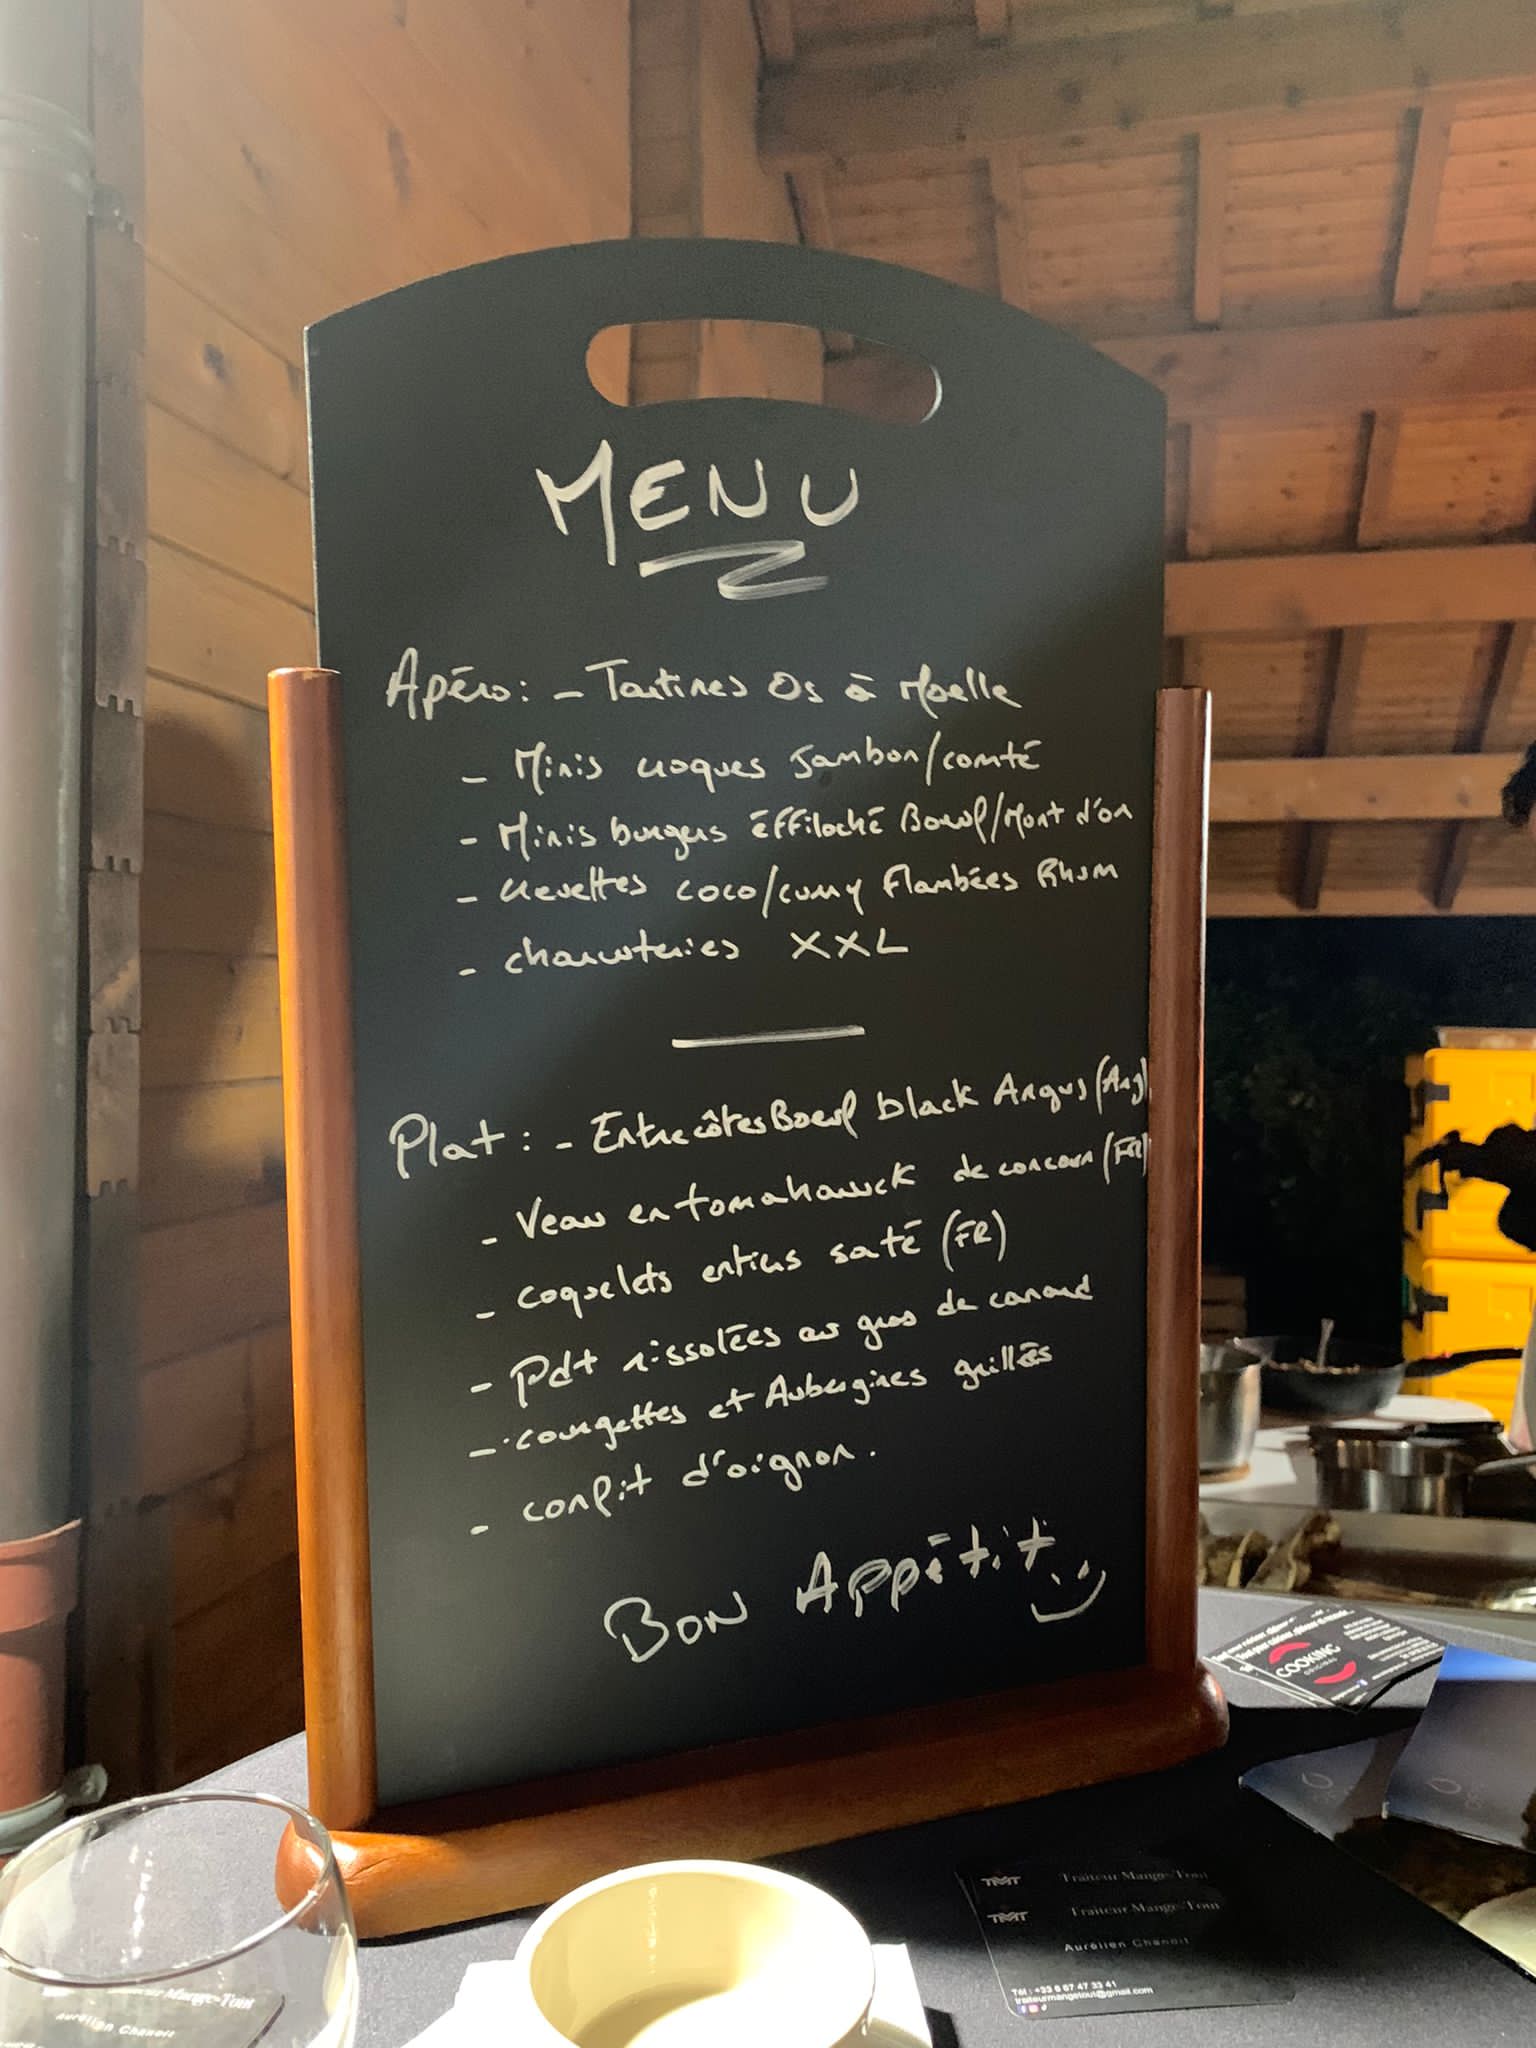 MENU
Apéro: - Tartines Os à Moelle
- Minis croques Jambon/comté
- Minis burgers éffiloché Boeuf/Mont d'or
- crevettes coco/curry Flambées Rhum
- charcuteries XXL
Plat: - Entrecôtes Boeuf black Angus (Ang)
- Veau en tomahawck de concour (FR)
- coquelets entiers saté (FR)
- Pdt rissolées au gras de canard
- courgettes et Aubergines grillés
- confit d'oignon.
BON APPétit
COOKING
ORIGINAL
TMT Traiteur Mange-Tout
TMT Traiteur Mange-Tout
Aurélien Chanoit
Tél : +33 6 67 47 33 41
traiteurmangetout@gmail.com
Mange-Tout
Aurélien Chanoit